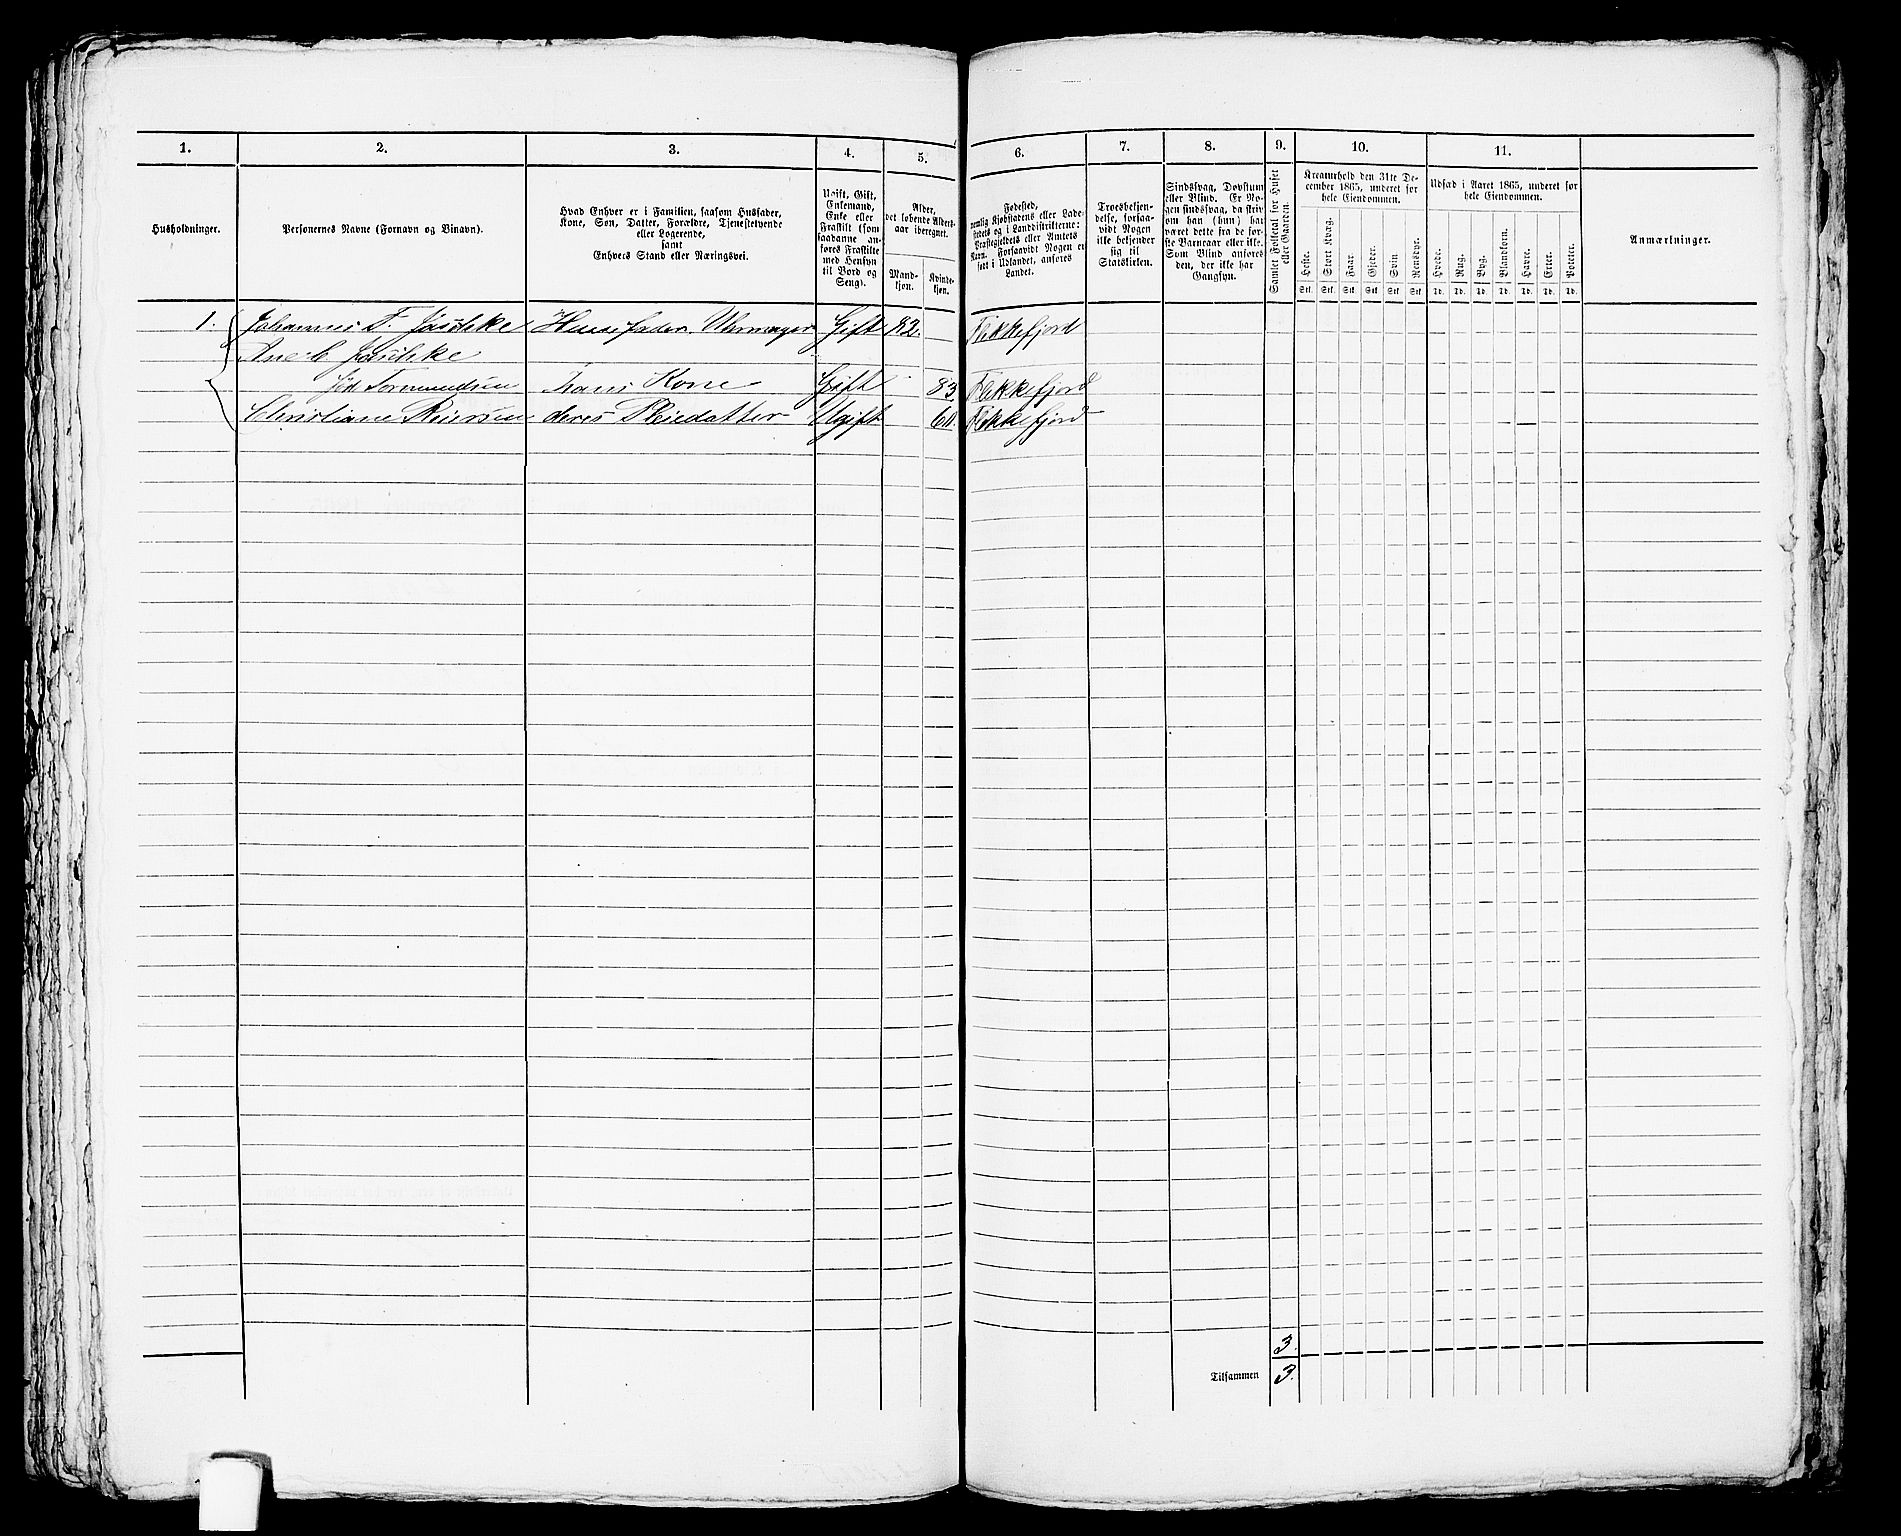 1. 2. 3. 4. 5. 6. 7. 8. 9. 10. 11.
Husholdninger.
Personernes Navne (Fornavn og Binavn).
Hvad Enhver er i Familien, saasom Husfader,
Kone, Søn, Datter, Forældre, Tjenestetyende
eller Logerende,
samt
Enhvers Stand eller Næringsvei.
Ugift, Gift,
Enkemand,
Enke eller
Fraskilt (som
saadanne an-
føres Fraskilte
med Hensyn
til Bord og
Seng).
Alder,
det løbende Alders-
aar iberegnet.
Mand-
kjøn.
Kvinde-
kjøn.
Fødested,
nemlig Kjøbstadens eller Lade-
stedets og i Landdistrikterne:
Præstegjeldets eller Amtets
Navn. Forsaavidt Nogen er
født i Udlandet, anføres
Landet.
Troesbekjen-
delse, forsaa-
vidt Nogen
ikke bekjender
sig til
Statskirken.
Sindssvag, Døvstum
eller Blind. Er No-
gen sindssvag, da skriv
om han (hun) har
været dette fra de før-
ste Barneaar eller ikke.
Som Blind anføres
den, der ikke har
Gangsyn.
Samlet Folketal for Huset
eller Gaarden.
Kreaturhold den 31te De-
cember 1865, underet for
hele Eiendommen.
Heste. Stort Kvæg. Faar. Gjeder. Svin. Rensdyr.
Stk. Stk. Stk. Stk. Stk. Stk.
Udsæd i Aaret 1865, underet for
hele Eiendommen.
Hvede. Rug. Byg. Blandkorn. Havre. Erter. Poteter.
Td. Td. Td. Td. Td. Td. Td.
Anmærkninger.
1. Johannes F. Jaschke Huusfader. Uhrmager Gift 82. Flekkefjord
Jaschke
fød Tormundsen hans Kone Gift 83. Flekkefjord
Christiane Reiersen deres Pleiedatter Ugift Flekkefjord
3.
Tilsammen 3.